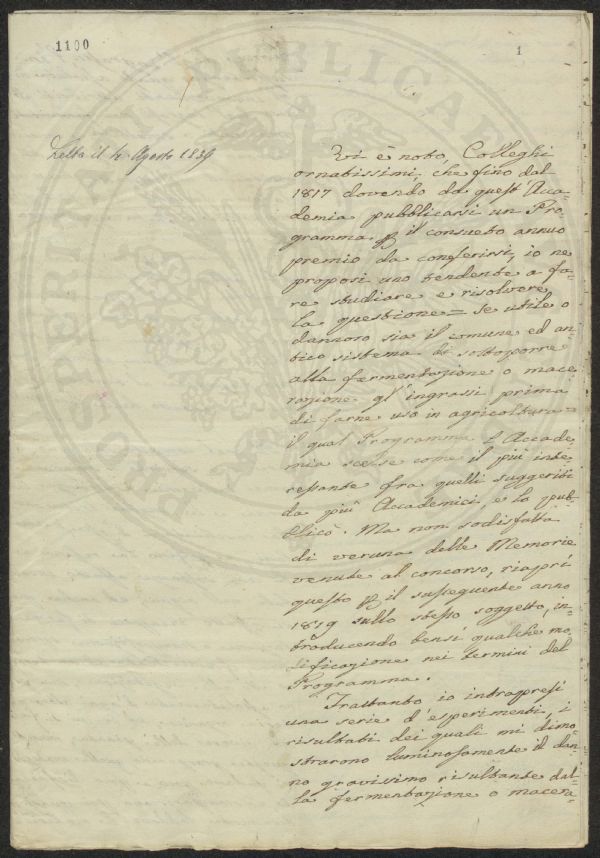 1100
1
Letta il 4. Agosto 1839
Vi è noto, Colleghi
ornatissimi, che fino dal
1817 dovendo da quest'Acca-
demia pubblicarsi un Pro-
gramma p il consueto annuo
premio da conferirsi, io ne
proposi uno tendente a fa-
re studiare e risolvere
la questione = Se utile o
dannoso sia il comune ed an-
tico sistema di sottoporre
alla fermentazione o mace-
razione gl'ingrassi prima
di farne uso in agricoltura =
il qual Programma l'Accade-
mia scelse come il più inte-
ressante fra quelli suggeriti
da più Accademici, e lo pub-
blicò. Ma non sodisfatta
di veruna delle Memorie
venute al concorso, riaprì
questo p il susseguente anno
1819 sullo stesso soggetto, in-
troducendo bensì qualche mo-
dificazione nei termini del
Programma.
Frattanto io intrapresi
una serie d'esperimenti, i
risultati dei quali mi dimo-
strarono luminosamente il dan-
no gravissimo risultante dal-
la fermentazione o macera-
PROSPERITATI PUBLICAE